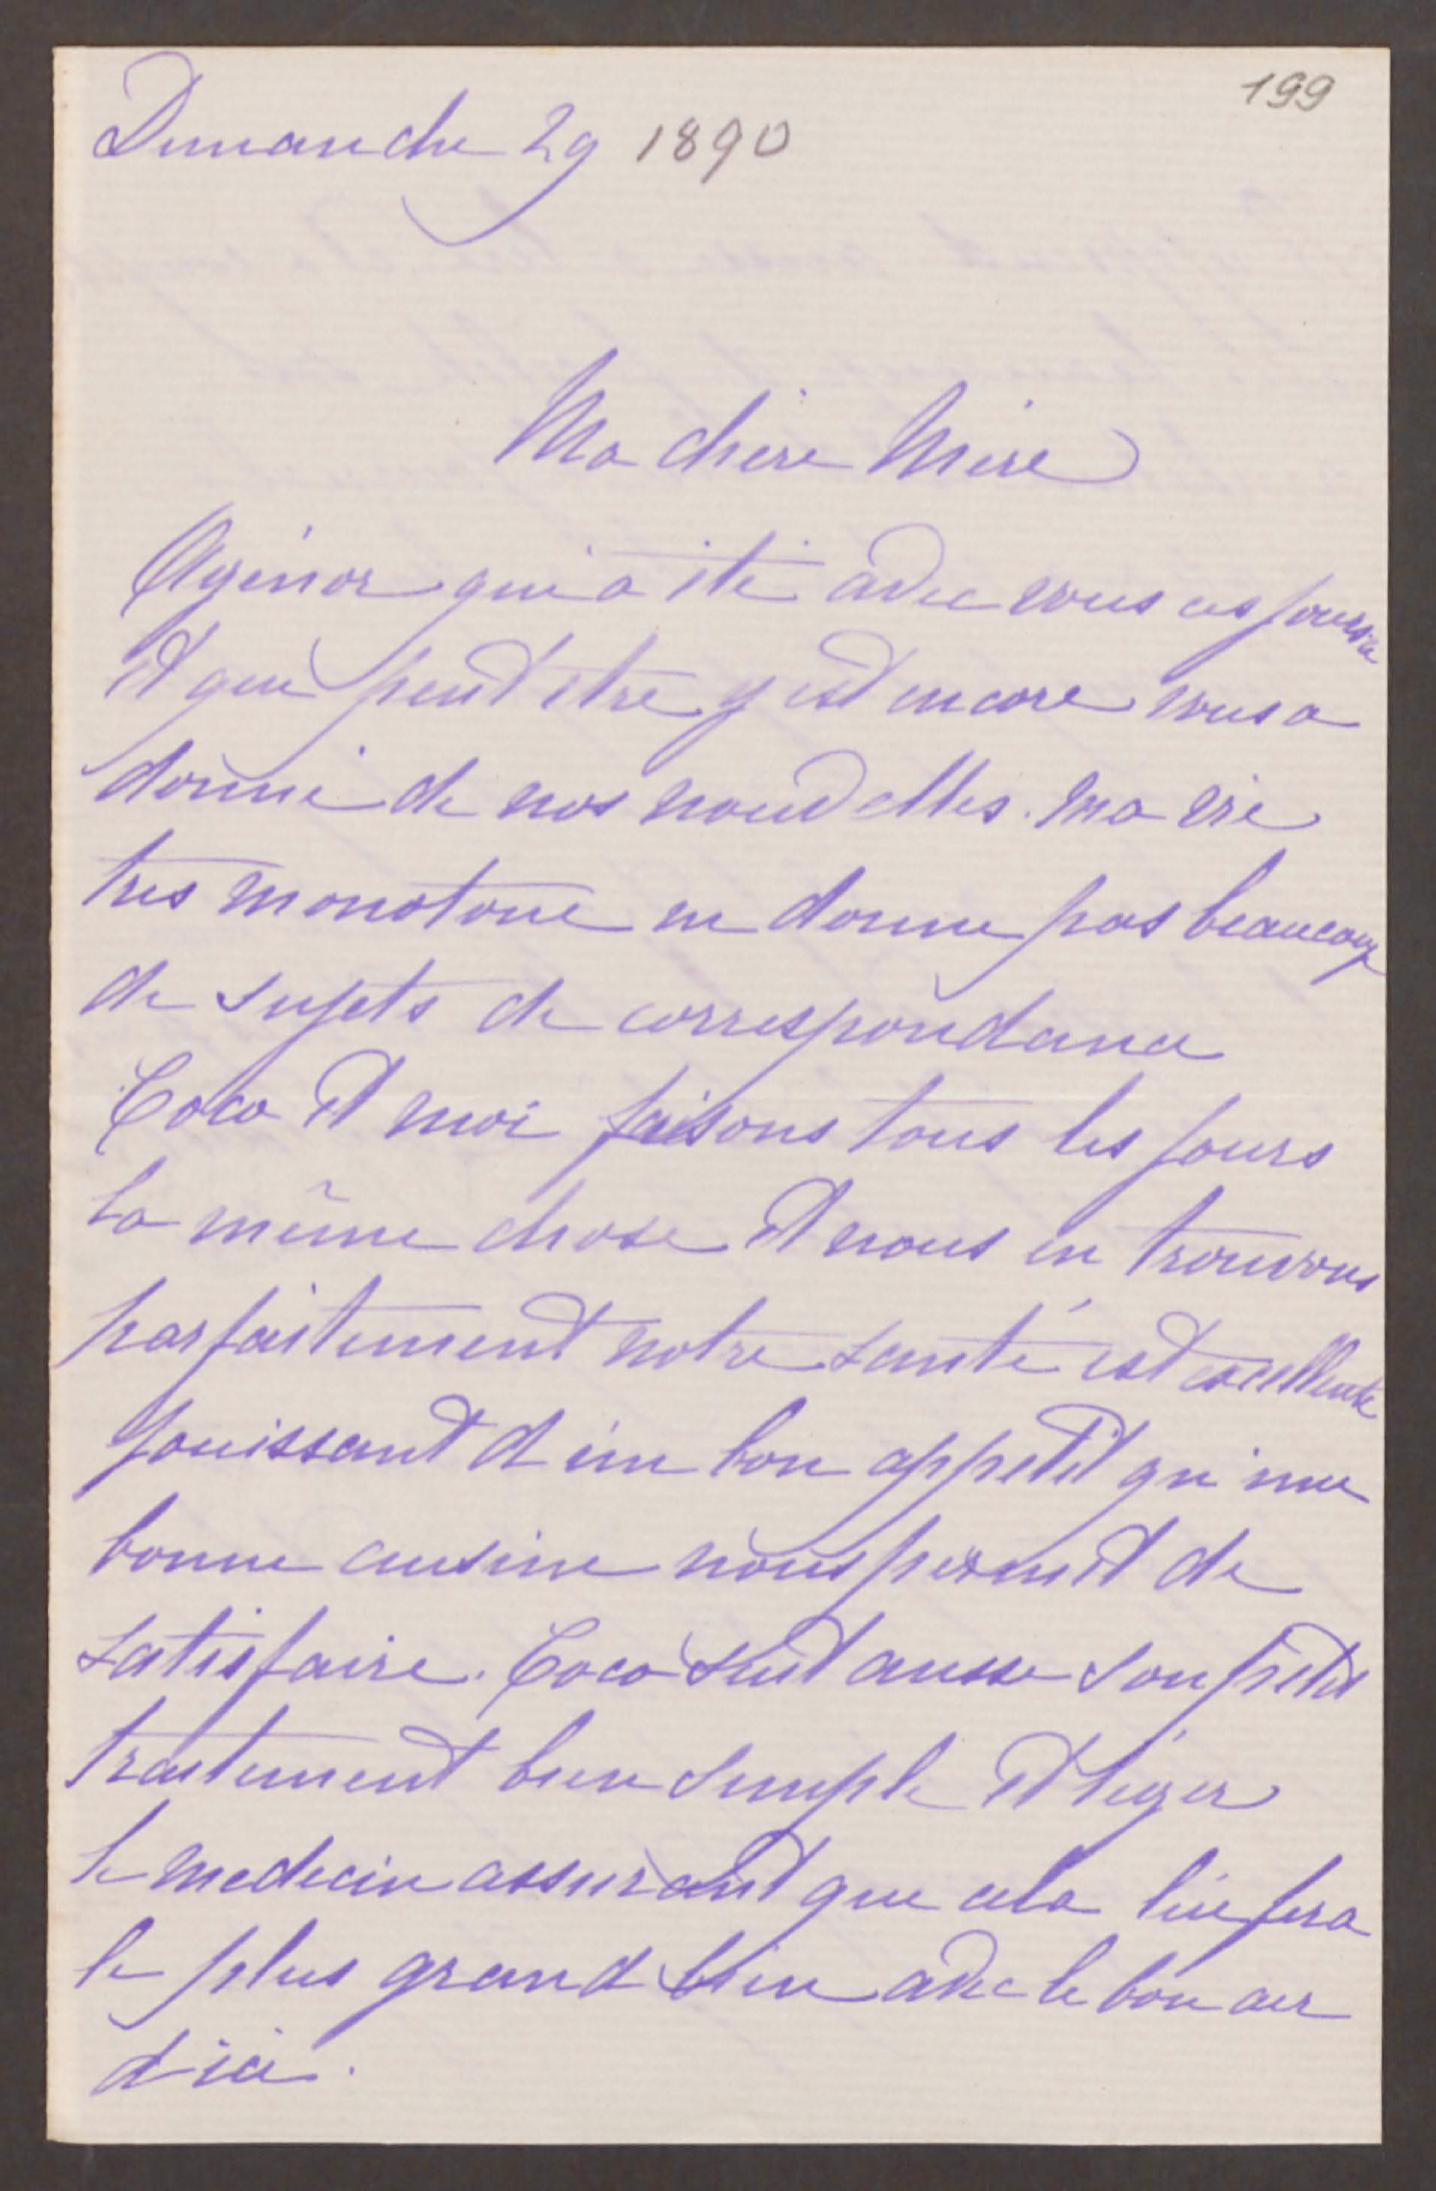 199
Dimanche 29 1890
Ma chère Mère
Agénor qui a été avec vous ces jours ci
et qui peut etre y est encore vous a
donné de nos nouvelles. Ma vie
tres monotone ne donne pas beaucoup
de sujets de correspondance
Coco et moi faisons tous les jours
la même chose et nous en trouvons
parfaitement notre santé est excellente
jouissant d'un bon appetit qu'une
bonne cuisine nous permet de
satisfaire. Coco suit aussi son petit
traitement bien simple et léger
le medecin assurant que cela lui fera
le plus grand bien avec le bon air
d'ici.